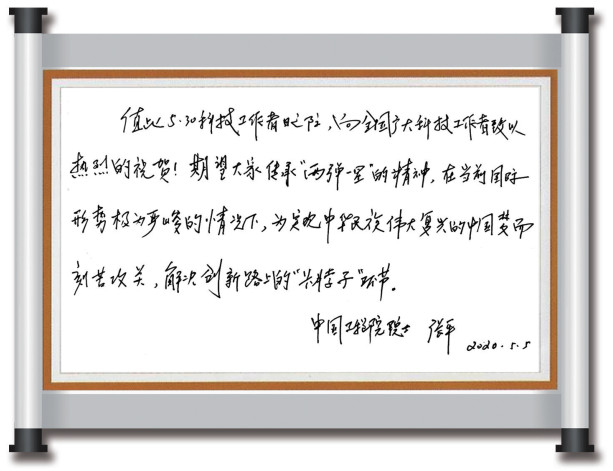 值此5.30科技工作者日之际，向全国广大科技工作者致以
热烈的祝贺！期望大家传承"两弹一星"的精神，在当前国际
形势极为严峻的情况下，为实现中华民族伟大复兴的中国梦而
刻苦攻关，解决创新路上的"卡脖子"环节。
中国工程院院士 张平
2020.5.5